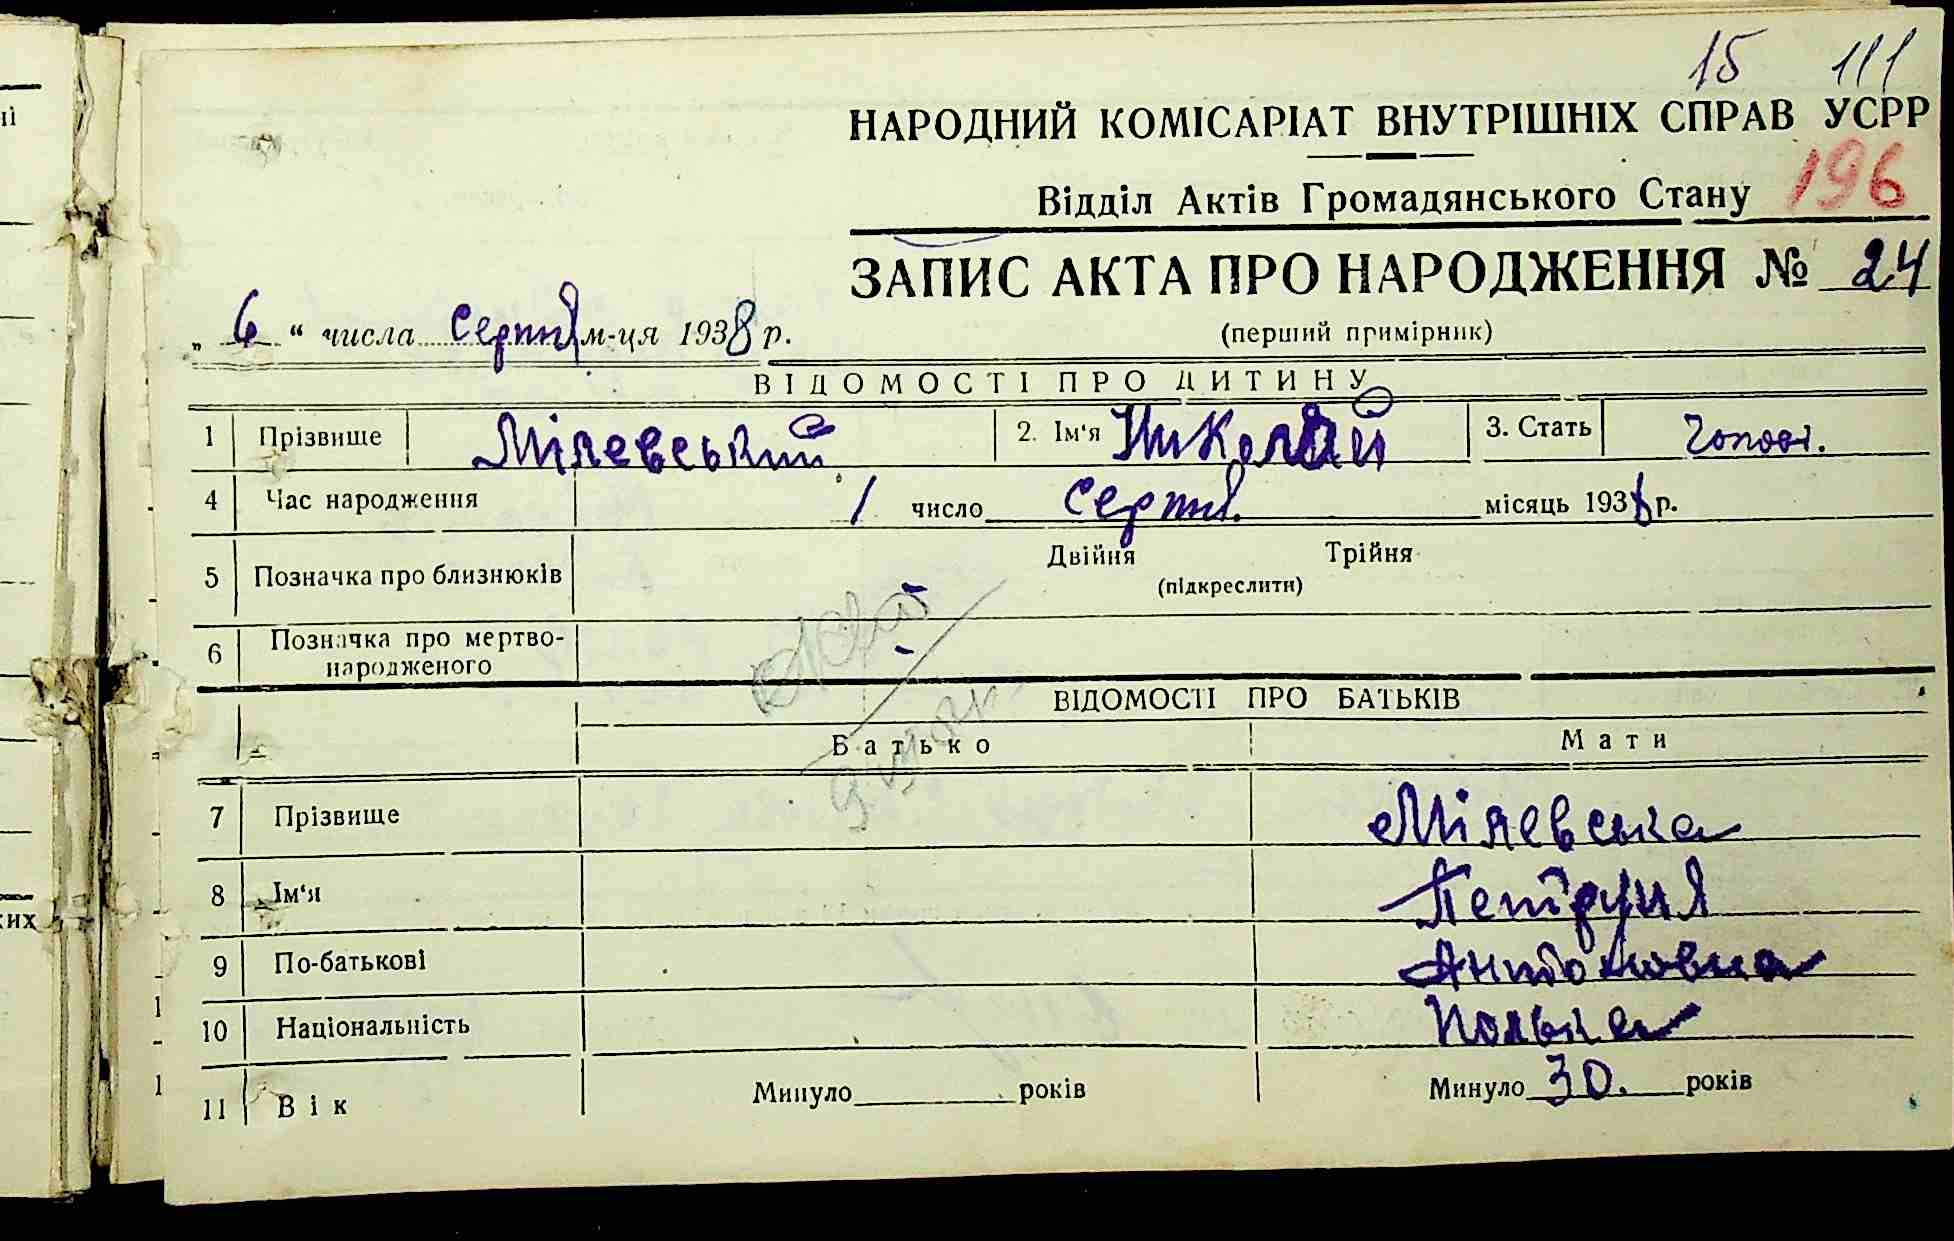 15 111
НАРОДНИЙ КОМІСАРІАТ ВНУТРІШНІХ СПРАВ УСРР
Відділ Актів Громадянського Стану 196
ЗАПИС АКТА ПРО НАРОДЖЕННЯ № 24
„ 6 “ числа Серпня м-ця 1938 р.
(перший примірник)
ВІДОМОСТІ ПРО ДИТИНУ
1 Прізвище Мілевський 2. Ім‘я Николай 3. Стать Чолові.
4 Час народження 1 число Серпня. місяць 1938 р.
5 Позначка про близнюків Двійня Трійня
(підкреслити)
6 Позначка про мертво-
народженого
ВІДОМОСТІ ПРО БАТЬКІВ
Батько Мати
7 Прізвище Мілевська
8 Ім‘я Петруня
9 По-батькові Антоновна
10 Національність Полька
11 Вік Минуло років Минуло 30. років
их